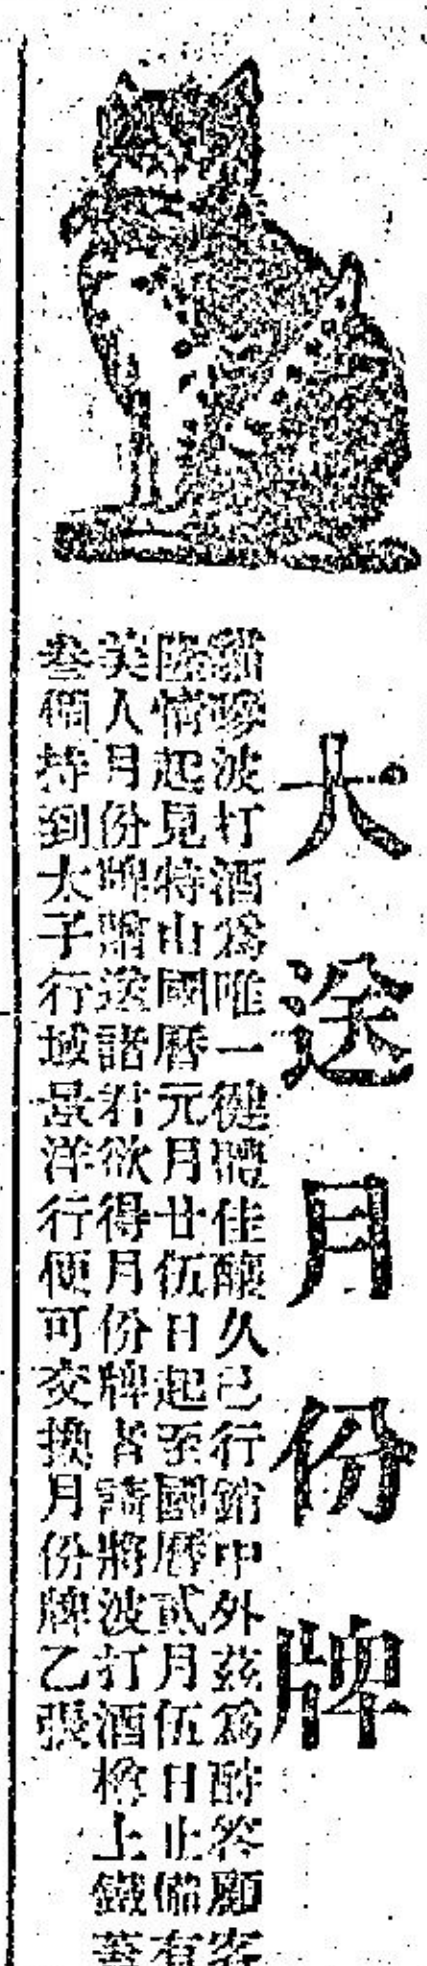 大送月份牌
貓嘜波打酒為唯一健體佳釀久已行銷中外茲為酧答顧客
隆情起見特由國曆元月廿伍日起至國曆貳月伍日止備有
美人月份牌贈送諸君欲得月份牌者請將波打酒樽上鐵蓋
叁個持到太子行域景洋行便可交換月份牌乙張